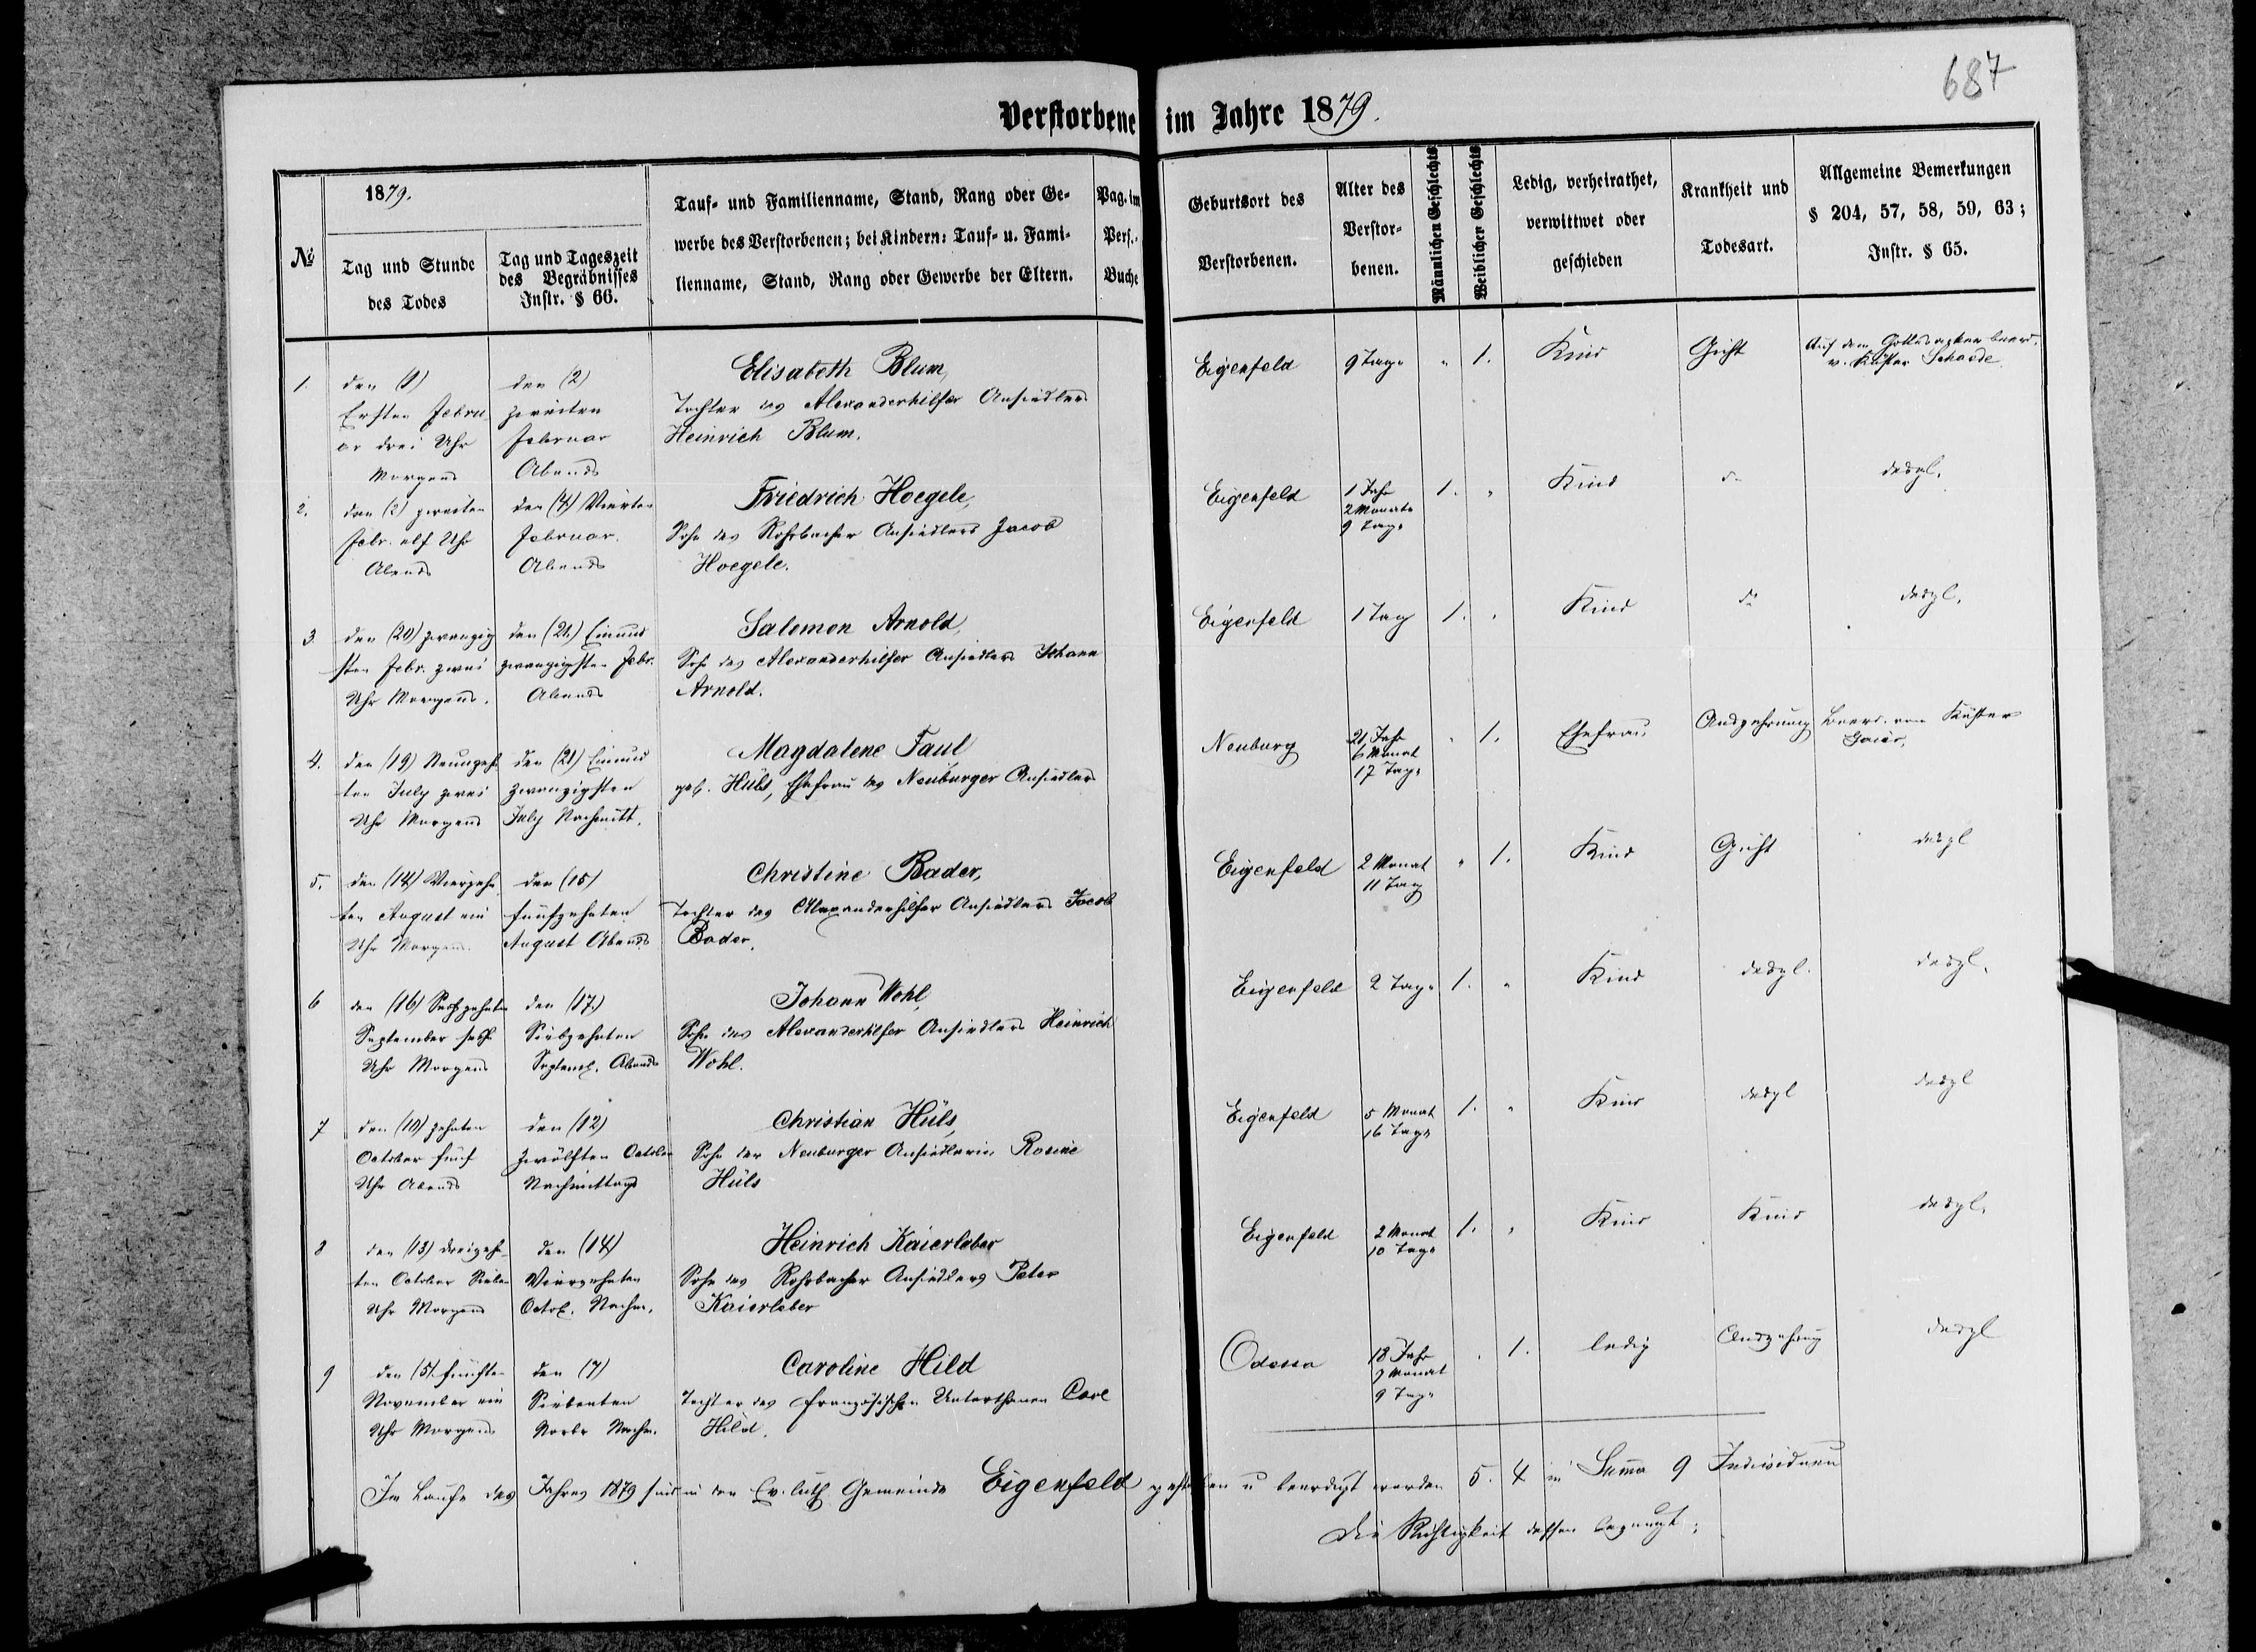 687
Verstorbene im Jahre 1879.
№
1879.
Tag und Stunde
des Todes
Tag und Tageszeit
des Begräbnisses
Instr. § 66.
Tauf- und Familienname, Stand, Rang oder Ge-
werbe des Verstorbenen; bei Kindern: Tauf- u. Fami-
lienname, Stand, Rang oder Gewerbe der Eltern.
Pag. im
Pers.-
Buche
Geburtsort des
Verstorbenen.
Alter des
Verstor-
benen.
Männlichen Geschlechts
Weiblichen Geschlechts
Ledig, verheirathet,
verwittwet oder
geschieden
Krankheit und
Todesart.
Allgemeine Bemerkungen
§ 204, 57, 58, 59, 63;
Instr. § 65.
1.
den (1)
Ersten Febru
ar drei Uhr
Morgens
den (2)
zweiten
Februar
Abends
Elisabeth Blum,
Tochter des Alexanderhilfer Ansiedlers
Heinrich Blum.
Eigenfeld
9 Tage
" 1.
Kind
Gicht
Auf dem Gottesacker beerd.
v. Küster Schaede
2.
den (2) zweiten
Febr. elf Uhr
Abends
den (4) Vierten
Februar.
Abends
Friedrich Hoegele,
Sohn des Rohrbacher Ansiedlers Jacob
Hoegele.
Eigenfeld
1 Jahr
2 Monate
9 Tage
1. "
Kind
do
desgl.
3
den (20) zwanzig
sten Febr. zwei
Uhr Morgens.
den (21.) Einund
zwanzigsten Febr.
Abends
Salomon Arnold,
Sohn des Alexanderhilfer Ansiedlers Johann
Arnold.
Eigenfeld
1 Tag
1. "
Kind
do
desgl.
4.
den (19) Neunzehn
ten July zwei
Uhr Morgens
den (21) Einund
zwanzigsten
July Nachmitt.
Magdalene Faul
geb. Hüls, Ehefrau des Neuburger Ansiedlers
Neuburg
21 Jahr
6 Monat
17 Tage
" 1.
Ehefrau
Auszehrung
Beerd. vom Küster
5.
den (14) Vierzehn
ten August ein
Uhr Morgens.
den (15)
fünfzehnten
August Abends
Christine Bader,
Tochter des Alexanderhilfer Ansiedlers Jacob
Bader.
Eigenfeld
2 Monat
11 Tag
" 1.
Kind
Gicht
desgl
6
den (16) Sechzehnten
September sechs
Uhr Morgens
den (17.)
Siebzehnten
Septemb. Abends
Johann Wohl,
Sohn des Alexanderhilfer Ansiedlers Heinrich
Wohl.
Eigenfeld
2 Tage
1. "
Kind
desgl.
desgl.
7
den (10) zehnten
October fünf
Uhr Abends
den (12)
zwölften October
Nachmittags
Christian Hüls,
Sohn der Neuburger Ansiedlerin Rosine
Hüls
Eigenfeld
5 Monat
16 Tage
1. "
Kind
desgl
desgl
8
den (13) dreizehn
ten October Sieben
Uhr Morgens
den (14)
Vierzehnten
Octob. Nachm.
Heinrich Kaierleber
Sohn des Rohrbacher Ansiedlers Peter
Kaierleber
Eigenfeld
2 Monat
10 Tage
1. "
Kind
Kind
desgl.
9
den (5). fünften
November ein
Uhr Morgens
den (7)
Siebenten
Novbr Nachm.
Caroline Hild
Tochter des französischen Unterthanen Carl
Hild.
Odessa
18 Jahr
9 Monat
9 Tage
" 1.
ledig
Auszehrung
desgl
Im Laufe des Jahres 1879 sind in der Ev. luth. Gemeinde Eigenfeld gestorben u beerdigt worden 5. 4 in Summa 9 Individuen
Die Richtigkeit dessen bezeugt: